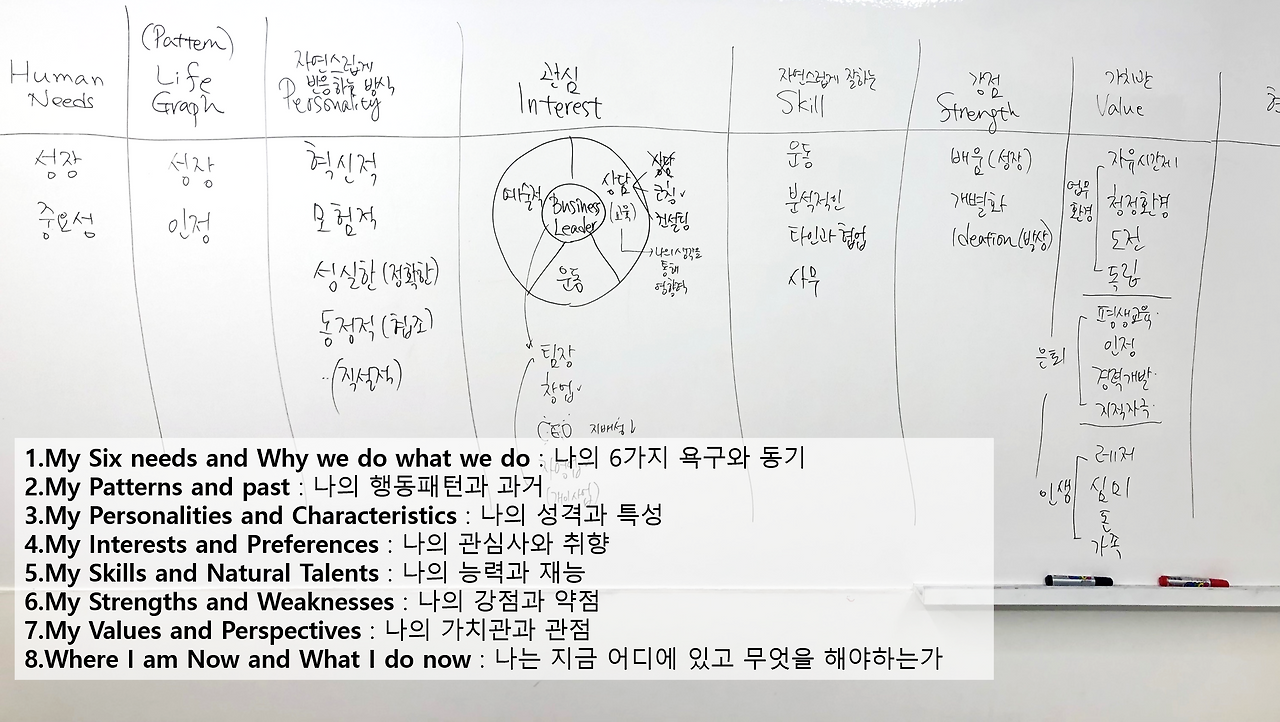 Human
Needs
성장
중요성
(Pattern)
Life
Graph
성장
인정
자연스럽게
반응하는 방식
Personality
혁신적
모험적
성실한 (정확한)
동정적 (협조)
(직설적)
관심
Interest
예술적
Business
Leader
상담
(교육)
운동
상담
코칭
컨설팅
나의 생각을
통해
영향력
팀장
창업
CEO 지배성↓
자영업
(개인사업)
자연스럽게 잘하는
Skill
운동
분석적인
타인과 협업
사무
강점
Strength
배움 (성장)
개별화
Ideation (발상)
가치관
Value
업무
환경
자유시간제
청정환경
도전
독립
은퇴
평생교육
인정
경력개발
지적자극
인생
레저
심미
돈
가족
1.My Six needs and Why we do what we do : 나의 6가지 욕구와 동기
2.My Patterns and past : 나의 행동패턴과 과거
3.My Personalities and Characteristics : 나의 성격과 특성
4.My Interests and Preferences : 나의 관심사와 취향
5.My Skills and Natural Talents : 나의 능력과 재능
6.My Strengths and Weaknesses : 나의 강점과 약점
7.My Values and Perspectives : 나의 가치관과 관점
8.Where I am Now and What I do now : 나는 지금 어디에 있고 무엇을 해야하는가